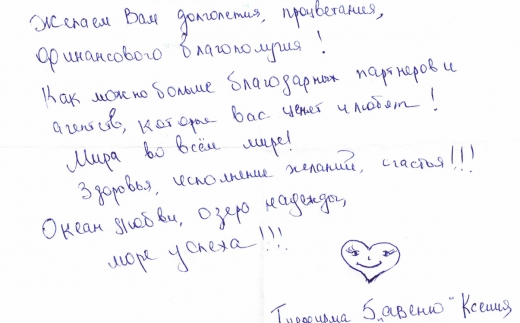 Желаем Вам долголетия, процветания,
финансового благополучия!
Как можно больше благодарных партнеров и
агентств, которые вас ценят и любят!
Мира во всём мире!
Здоровья, исполнение желаний, счастья!!!
Океан любви, озеро надежды,
море успеха!!!
Турфирма 5"авеню" Ксения